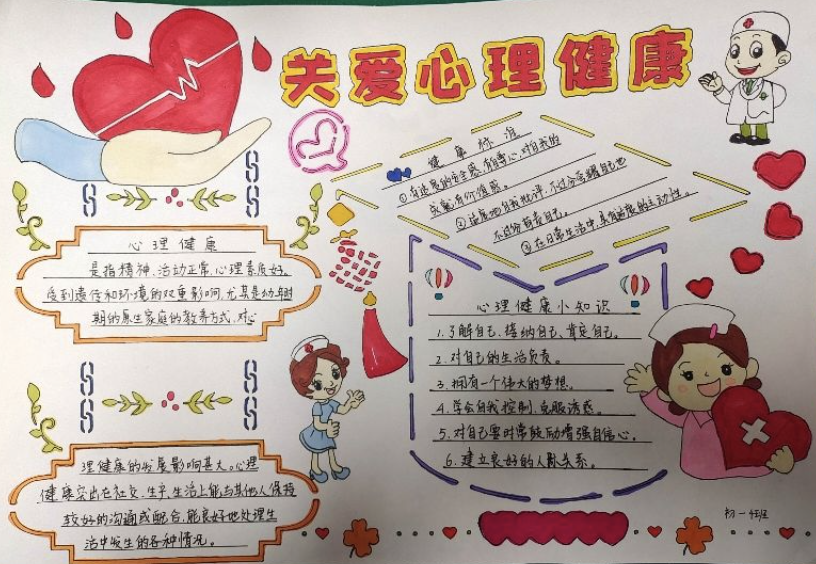 关爱心理健康
心理健康
是指精神、活动正常、心理素质好。
受到遗传和环境的双重影响,尤其是幼年时
期的原生家庭的教养方式,对心
理健康的发展影响甚大。心理
健康突出在社交、生产、生活上能与其他人保持
较好的沟通或配合,能良好地处理生
活中发生的各种情况。
健康标准
①有适度的安全感,有自尊心,对自我的
成就有价值感。
②适度地自我批评,不过分夸耀自己也
不过分自责自己。
③在日常生活中,具有适度的主动性。
心理健康小知识
1.了解自己、接纳自己、肯定自己。
2.对自己的生活负责。
3.拥有一个伟大的梦想。
4.学会自我控制,克服诱惑。
5.对自己要时常鼓励增强自信心。
6.建立良好的人际关系。